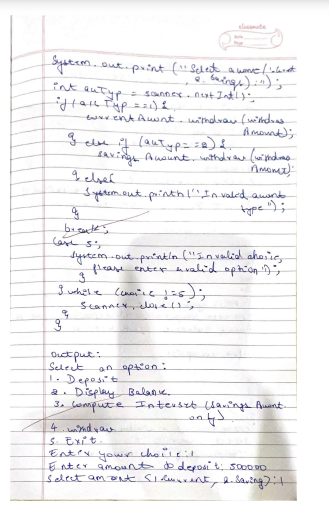 classmate
Date
Page
System.out.print ("Select acount (1.Current
, 2. Savings):");
int auTyp = scanner.nextInt();
if (auTyp ==1) {
currentAuont.withdraw (withdraw
Amount);
} else if (auTyp==2) {
savings Auount.withdraw (withdraw
Amount);
} else {
System.out.println ("Invalid auont
type");
}
break;
Case 5:
System.out.println ("Invalid choic,
please enter a valid option");
}
} while (choic !=5);
Scanner.close();
}
}
output:
Select an option:
1. Deposit
2. Display Balance
3. Compute Interset (Savings Auont
only)
4. withdraw
5. Exit.
Enter your choice: 1
Enter amount to deposit: 500000
Select amount (1.current, 2.Saving): 1